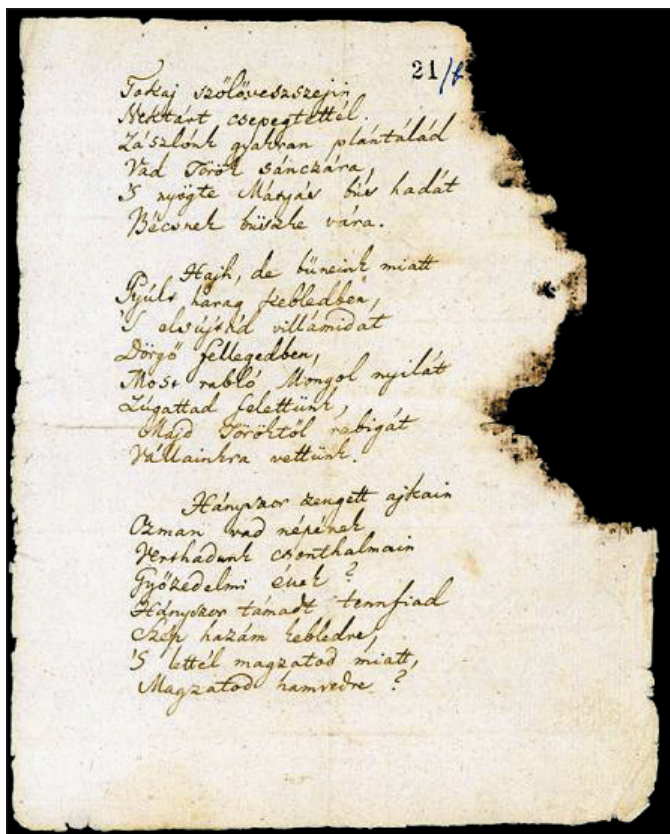 21/b
Tokaj szőlőveszszejin
Nektárt csepegtettél.
Zászlónk gyakran plántálád
Vad Török sánczára,
'S nyögte Mátyás bús hadát
Bécsnek büszke vára.
Hajh, de bűneink miatt
Gyúlt harag kebledben,
'S elsújtád villámidat
Dörgő fellegedben,
Most rabló Mongol nyilát
Zúgattad felettünk,
Majd Töröktől rabigát
Vállainkra vettünk.
Hányszor zengett ajkain
Ozman vad népének
Verthadunk csonthalmain
Győzedelmi ének?
Hányszor támadt tennfiad
Szép hazám kebledre,
'S lettél magzatod miatt,
Magzatod hamvedre?